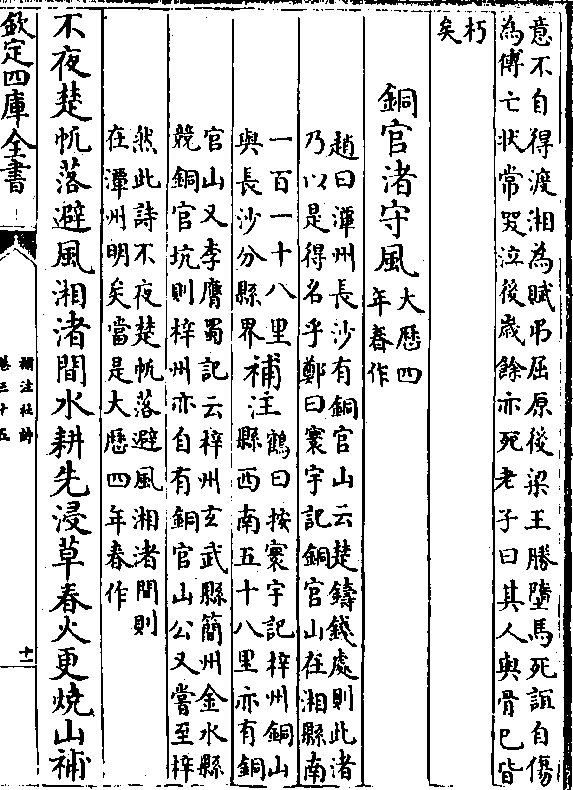 意不自得渡湘為賦弔屈原後梁王勝墮馬死誼自傷
為傅亡状常哭泣後歳餘亦死老子曰其人與骨已皆
朽
矣
銅官渚守風大歴四
年春作
趙曰潭州長沙有銅官山云楚鑄錢處則此渚
乃以是得名乎鄭曰寰宇記銅官山在湘縣南
一百一十八里補注鶴曰按寰宇記梓州銅山
與長沙分縣界縣西南五十八里亦有銅
官山又李膺蜀記云梓州玄武縣簡州金水縣
競銅官坑則梓州亦自有銅官山公又嘗至梓
然此詩不夜楚帆落避風湘渚間則
在潭州明矣當是大歴四年春作
不夜楚帆落避風湘渚間水耕先浸草春火更燒山補
欽定四庫全書
補注杜詩
卷三十五
十二